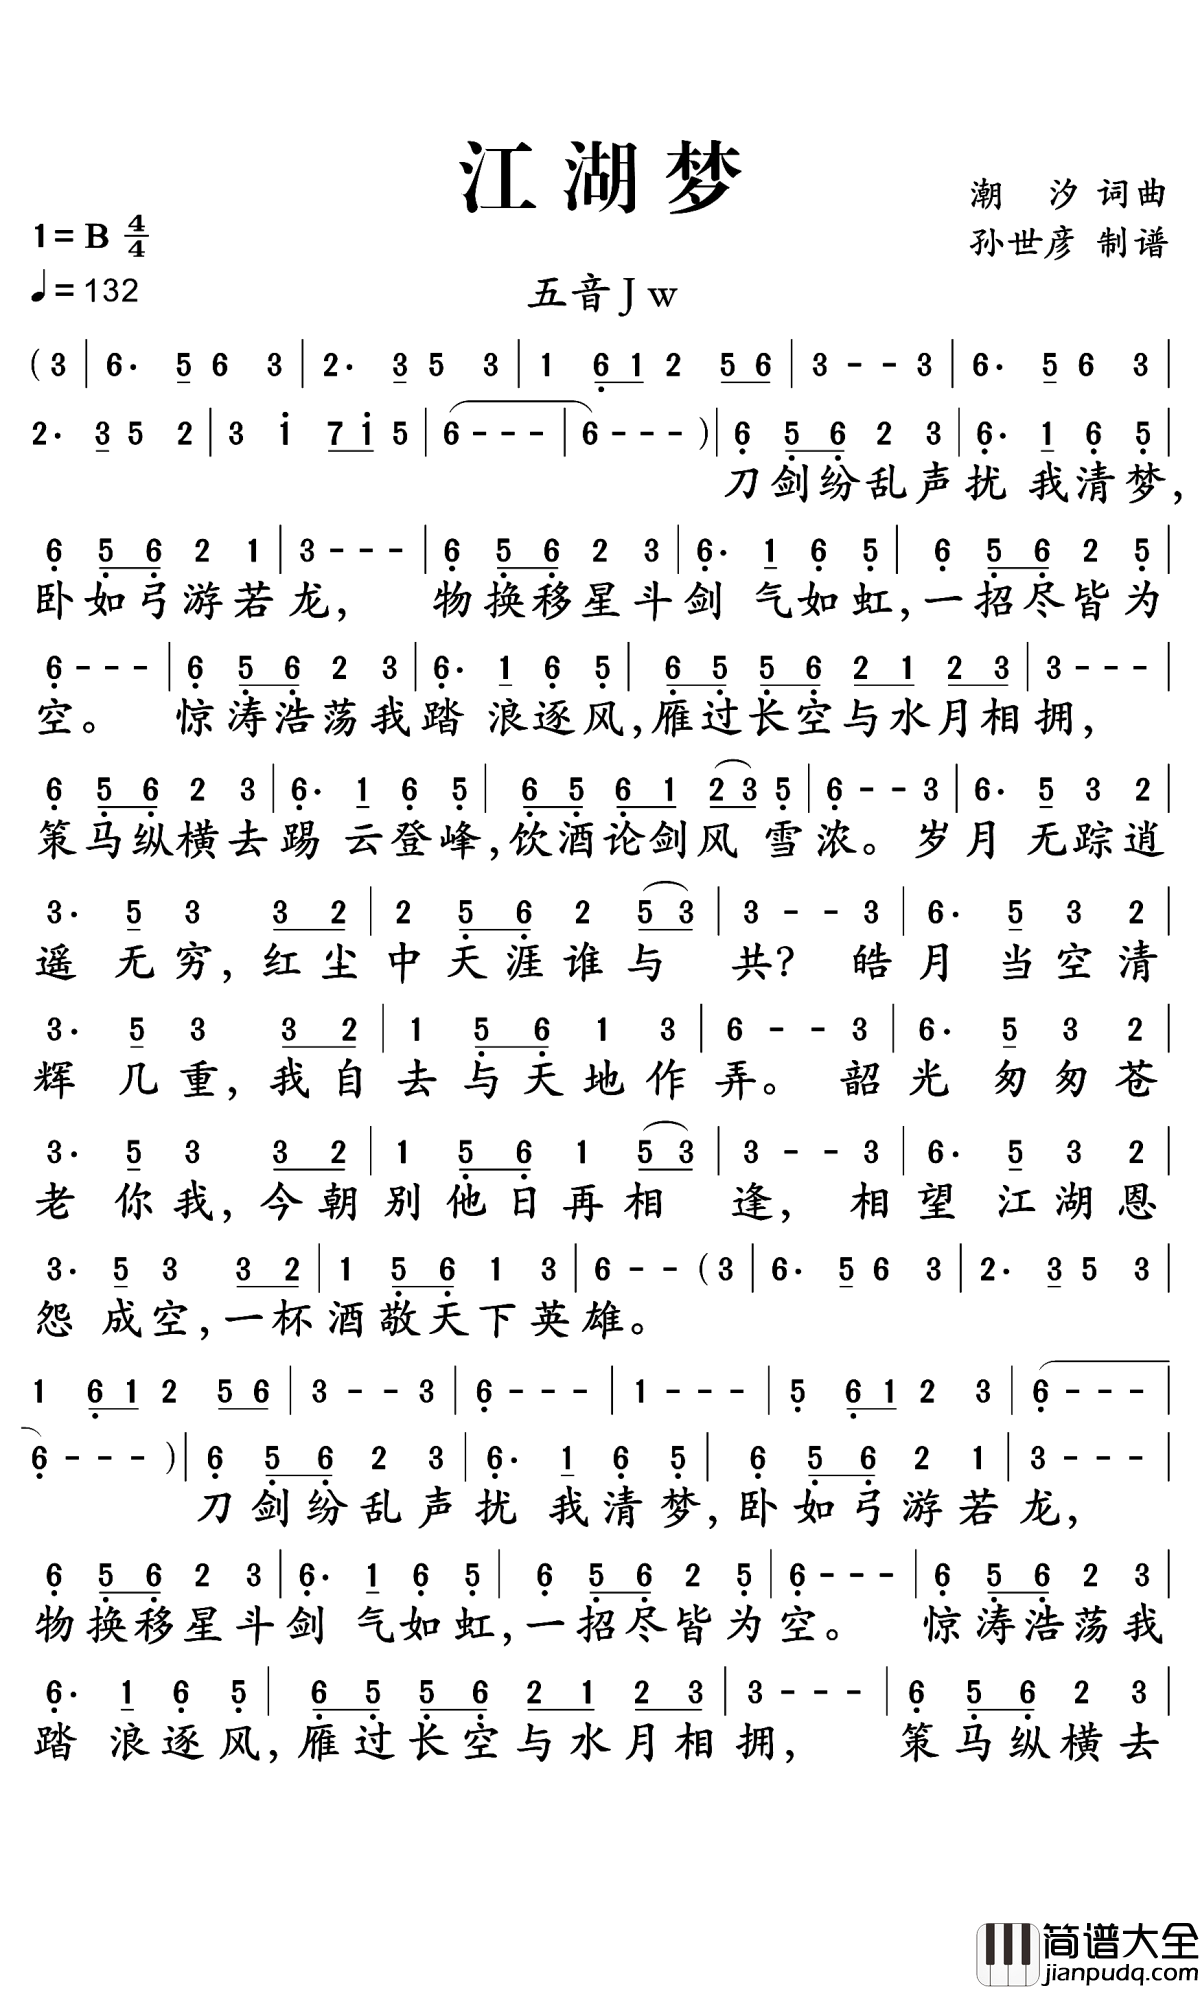 江湖梦
潮 汐 词曲
1= B 4/4
孙世彦 制谱
♩= 132
五音 J w
( 3 | 6· 5 6 3 | 2· 3 5 3 | 1 6̣ 1 2 5 6 | 3 - - 3 | 6· 5 6 3 |
2· 3 5 2 | 3 i 7 i 5 | 6 - - - | 6 - - - ) | 6̣ 5̣ 6̣ 2 3 | 6̣· 1 6̣ 5̣ |
刀剑纷乱声扰 我清梦,
6̣ 5̣ 6̣ 2 1 | 3 - - - | 6̣ 5̣ 6̣ 2 3 | 6̣· 1 6̣ 5̣ | 6̣ 5̣ 6̣ 2 5̣ |
卧如弓游若龙, 物换移星斗剑 气如虹,一招尽皆为
6̣ - - - | 6̣ 5̣ 6̣ 2 3 | 6̣· 1 6̣ 5̣ | 6̣ 5̣ 5̣ 6̣ 2 1 2 3 | 3 - - - |
空。 惊涛浩荡我踏 浪逐风,雁过长空与水月相拥,
6̣ 5̣ 6̣ 2 3 | 6̣· 1 6̣ 5̣ | 6̣ 5̣ 6̣ 1 2 3 5̣ | 6̣ - - 3 | 6· 5 3 2 |
策马纵横去踢 云登峰,饮酒论剑风 雪浓。岁月 无踪逍
3· 5 3 3 2 | 2 5̣ 6̣ 2 5 3 | 3 - - 3 | 6· 5 3 2 |
遥 无穷, 红尘中天涯谁与 共? 皓月 当空清
3· 5 3 3 2 | 1 5̣ 6̣ 1 3 | 6 - - 3 | 6· 5 3 2 |
辉 几重, 我自去与天地作弄。 韶光 匆匆苍
3· 5 3 3 2 | 1 5̣ 6̣ 1 5 3 | 3 - - 3 | 6· 5 3 2 |
老 你我, 今朝别他日再相 逢, 相望 江湖恩
3· 5 3 3 2 | 1 5̣ 6̣ 1 3 | 6 - - ( 3 | 6· 5 6 3 | 2· 3 5 3 |
怨 成空,一杯酒敬天下英雄。
1 6̣ 1 2 5 6 | 3 - - 3 | 6̣ - - - | 1 - - - | 5̣ 6̣ 1 2 3 | 6̣ - - - |
6̣ - - - ) | 6̣ 5̣ 6̣ 2 3 | 6̣· 1 6̣ 5̣ | 6̣ 5̣ 6̣ 2 1 | 3 - - - |
刀剑纷乱声扰 我清梦,卧如弓游若龙,
6̣ 5̣ 6̣ 2 3 | 6̣· 1 6̣ 5̣ | 6̣ 5̣ 6̣ 2 5̣ | 6̣ - - - | 6̣ 5̣ 6̣ 2 3 |
物换移星斗剑 气如虹,一招尽皆为空。 惊涛浩荡我
6̣· 1 6̣ 5̣ | 6̣ 5̣ 5̣ 6̣ 2 1 2 3 | 3 - - - | 6̣ 5̣ 6̣ 2 3 |
踏 浪逐风,雁过长空与水月相拥, 策马纵横去
简谱大全
jianpudq.com